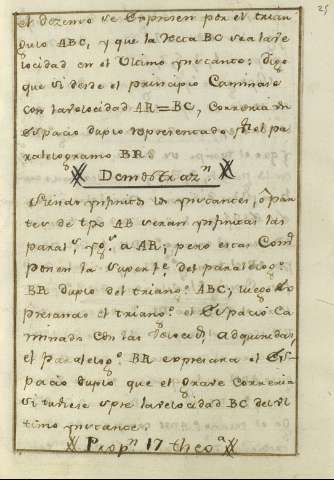 25
el dezenso se expresen por el trian
gulo ABC, y que la recta BC sea la ve
locidad en el ultimo instante: digo
que si desde el principio caminase
con la velocidad AR=BC, correria un
espacio duplo representado pr. el pa
ralelogramo BR.
Demostrazn.
Siendo infinitos los instantes, ô par
tes de tpo AB seran infinitas las
paral.s a AR; pero estas com
ponen la superfe. del paralelogo.
BR duplo del triango. ABC; luego ex
presando el triango. el espacio ca
minado con las velocids. adquiridas,
el paralelogo. BR expresara el es
pacio duplo que el grave correria
si tubiese spre la velocidad BC del ul
timo instante.
Propn. 17 theoa.